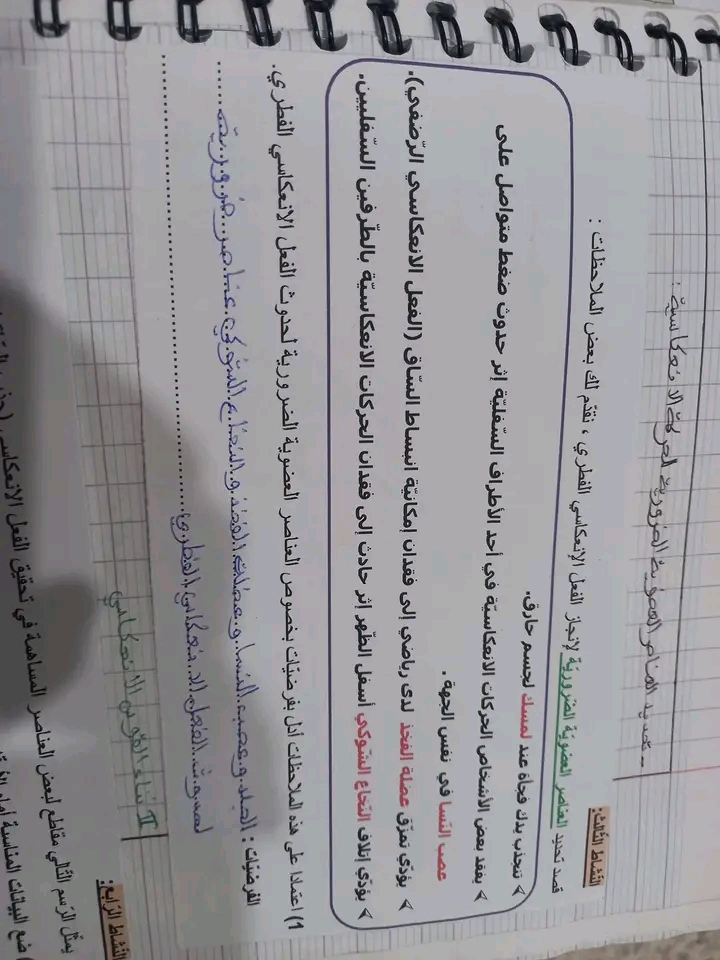 تحديد العناصر العضوية الضرورية للحركة الانعكاسية :
النشاط الثالث:
قصد تحديد العناصر العضوية الضرورية لإنجاز الفعل الإنعكاسي الفطري ، نقدّم لك بعض الملاحظات :
➢ تنجذب يدك فجأة عند لمسك لجسم حارق.
➢ يفقد بعض الأشخاص الحركات الانعكاسيّة في أحد الأطراف السّفليّة إثر حدوث ضغط متواصل على
عصب النّسا في نفس الجهة .
➢ يؤدّي تمزّق عضلة الفخذ لدى رياضي إلى فقدان إمكانيّة انبساط السّاق (الفعل الانعكاسي الرّضفي).
➢ يؤدّي إتلاف النّخاع الشّوكي أسفل الظّهر إثر حادث إلى فقدان الحركات الانعكاسيّة بالطّرفين السّفليين.
1) اعتمادا على هذه الملاحظات أدل بفرضيّات بخصوص العناصر العضوية الضرورية لحدوث الفعل الانعكاسي الفطري.
الفرضيّات : الجلد و عصب النسا و عضلة الفخذ و النخاع الشوكي عناصر ضرورية
لحدوث الفعل الانعكاسي الفطري
II بناء القوس الانعكاسي
النشاط الرّابع:
يمثّل الرّسم التّالي مقاطع لبعض العناصر المساهمة في تحقيق الفعل الانعكاسي
ضع البيانات المناسبة أمام